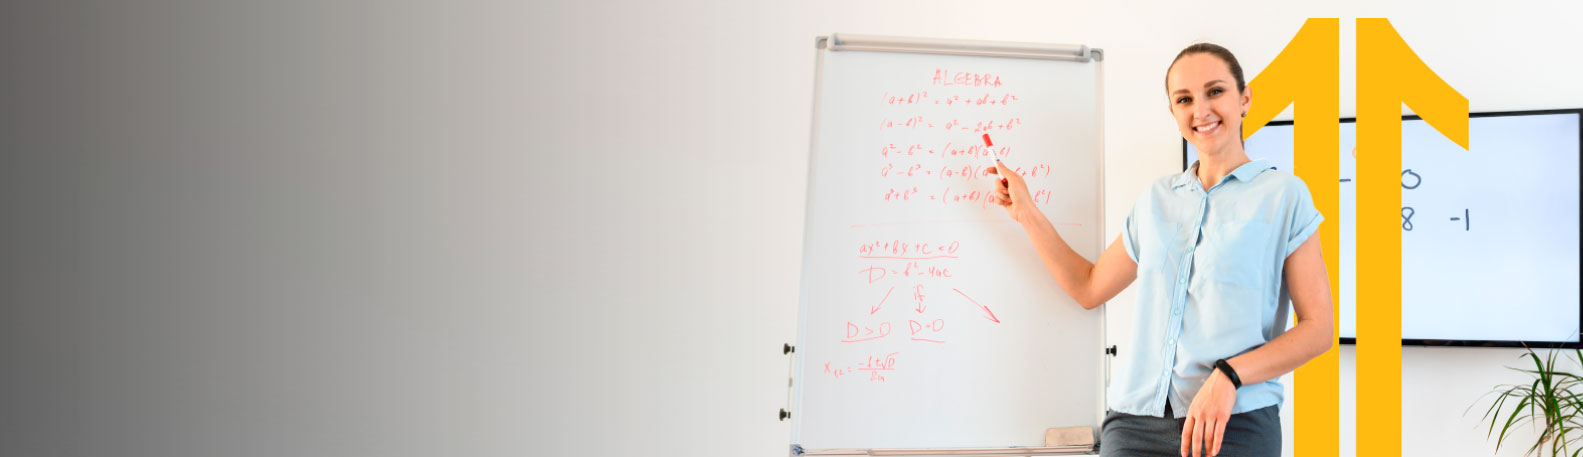 ALGEBRA
(a+b)² = a² + ab + b²
(a-b)² = a² - 2ab + b²
a² - b² = (a+b)(a-b)
a³ - b³ = (a-b)(a + b²)
a³ + b³ = (a+b)(a b²)
ax² + bx + c = 0
D = b² - 4ac
if
D > 0 D = 0
x₁,₂ = -b ± √D / 2a
- 0
8 -1